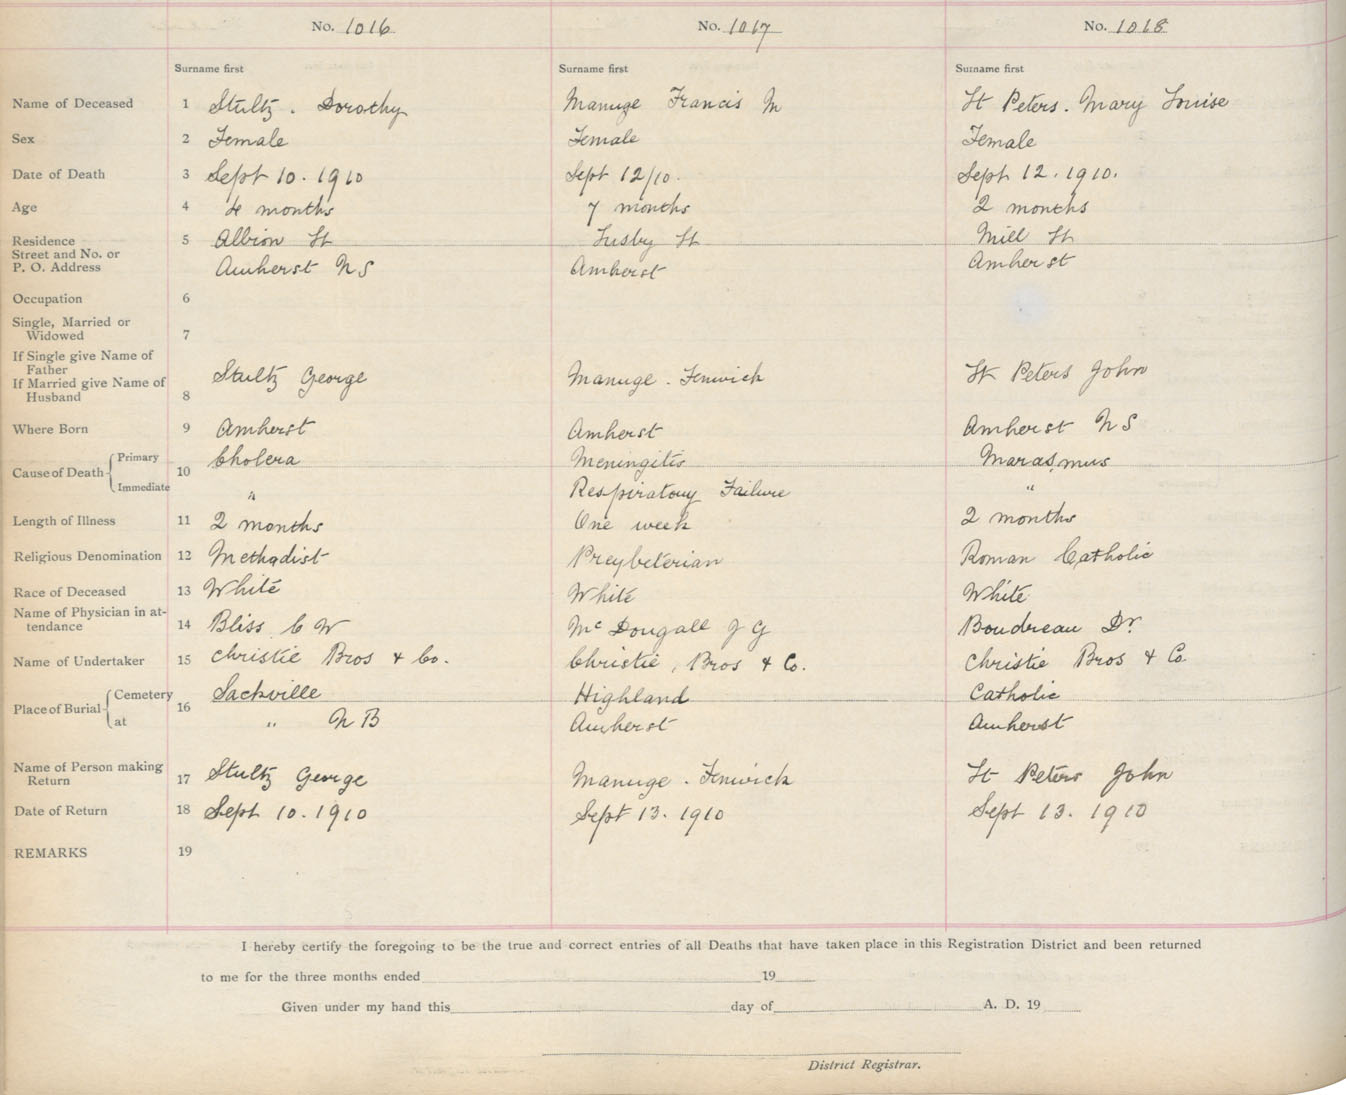 No. 1016 No. 1017 No. 1018
Surname first Surname first Surname first
Name of Deceased 1 Stultz. Dorothy Manuge Francis M St Peters. Mary Louise
Sex 2 Female Female Female
Date of Death 3 Sept 10. 1910 Sept 12/10. Sept 12. 1910.
Age 4 4 months 7 months 2 months
Residence 5 Albion St Lusby St Mill St
Street and No. or
P. O. Address Amherst N S Amherst Amherst
Occupation 6
Single, Married or
Widowed 7
If Single give Name of
Father Stultz George Manuge. Fenwick St Peters John
If Married give Name of
Husband 8
Where Born 9 Amherst Amherst Amherst N S
Cause of Death Primary 10 Cholera Meningitis Marasmus
Immediate " Respiratory Failure "
Length of Illness 11 2 months One week 2 months
Religious Denomination 12 Methodist Preybeterian Roman Catholic
Race of Deceased 13 White White White
Name of Physician in at-
tendance 14 Bliss C W McDougall J G Boudreau Dr.
Name of Undertaker 15 Christie Bros & Co. Christie, Bros & Co. Christie Bros & Co
Place of Burial Cemetery 16 Sackville Highland Catholic
at " N B Amherst Amherst
Name of Person making
Return 17 Stultz George Manuge. Fenwick St Peters John
Date of Return 18 Sept 10. 1910 Sept 13. 1910 Sept 13. 1910
REMARKS 19
I hereby certify the foregoing to be the true and correct entries of all Deaths that have taken place in this Registration District and been returned
to me for the three months ended 19
Given under my hand this day of A. D. 19
District Registrar.